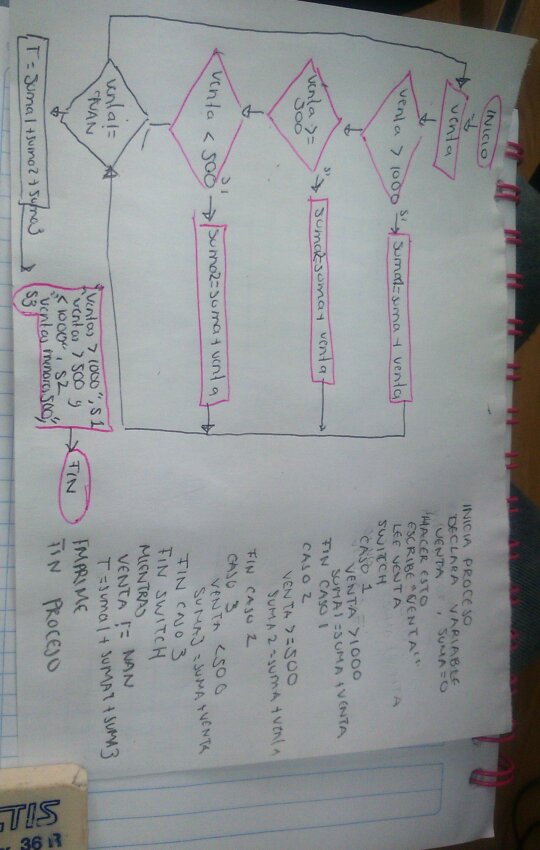 INICIO
venta
venta > 1000
si
suma1=suma + venta
venta >=
500
si
suma2=suma + venta
venta < 500
si
suma2=suma + venta
venta !=
NAN
T = suma1 + suma2 + suma3
Ventas > 1000", S1
ventas > 500 y
< 1000", S2
Ventas menores 500",
S3
FIN
INICIA PROCESO
DECLARA VARIABLE
VENTA , SUMA=0
HACER ESTO
ESCRIBE "VENTA"
LEE VENTA
SWITCH
CASO 1
VENTA > 1000
SUMA1 = SUMA + VENTA
FIN CASO 1
CASO 2
VENTA >= 500
SUMA 2 = SUMA + VENTA
FIN CASO 2
CASO 3
VENTA < 500
SUMA3 = SUMA + VENTA
FIN CASO 3
FIN SWITCH
MIENTRAS
VENTA != NAN
T = SUMA1 + SUMA2 + SUMA3
IMPRIME
FIN PROCESO
CTIS
36 R